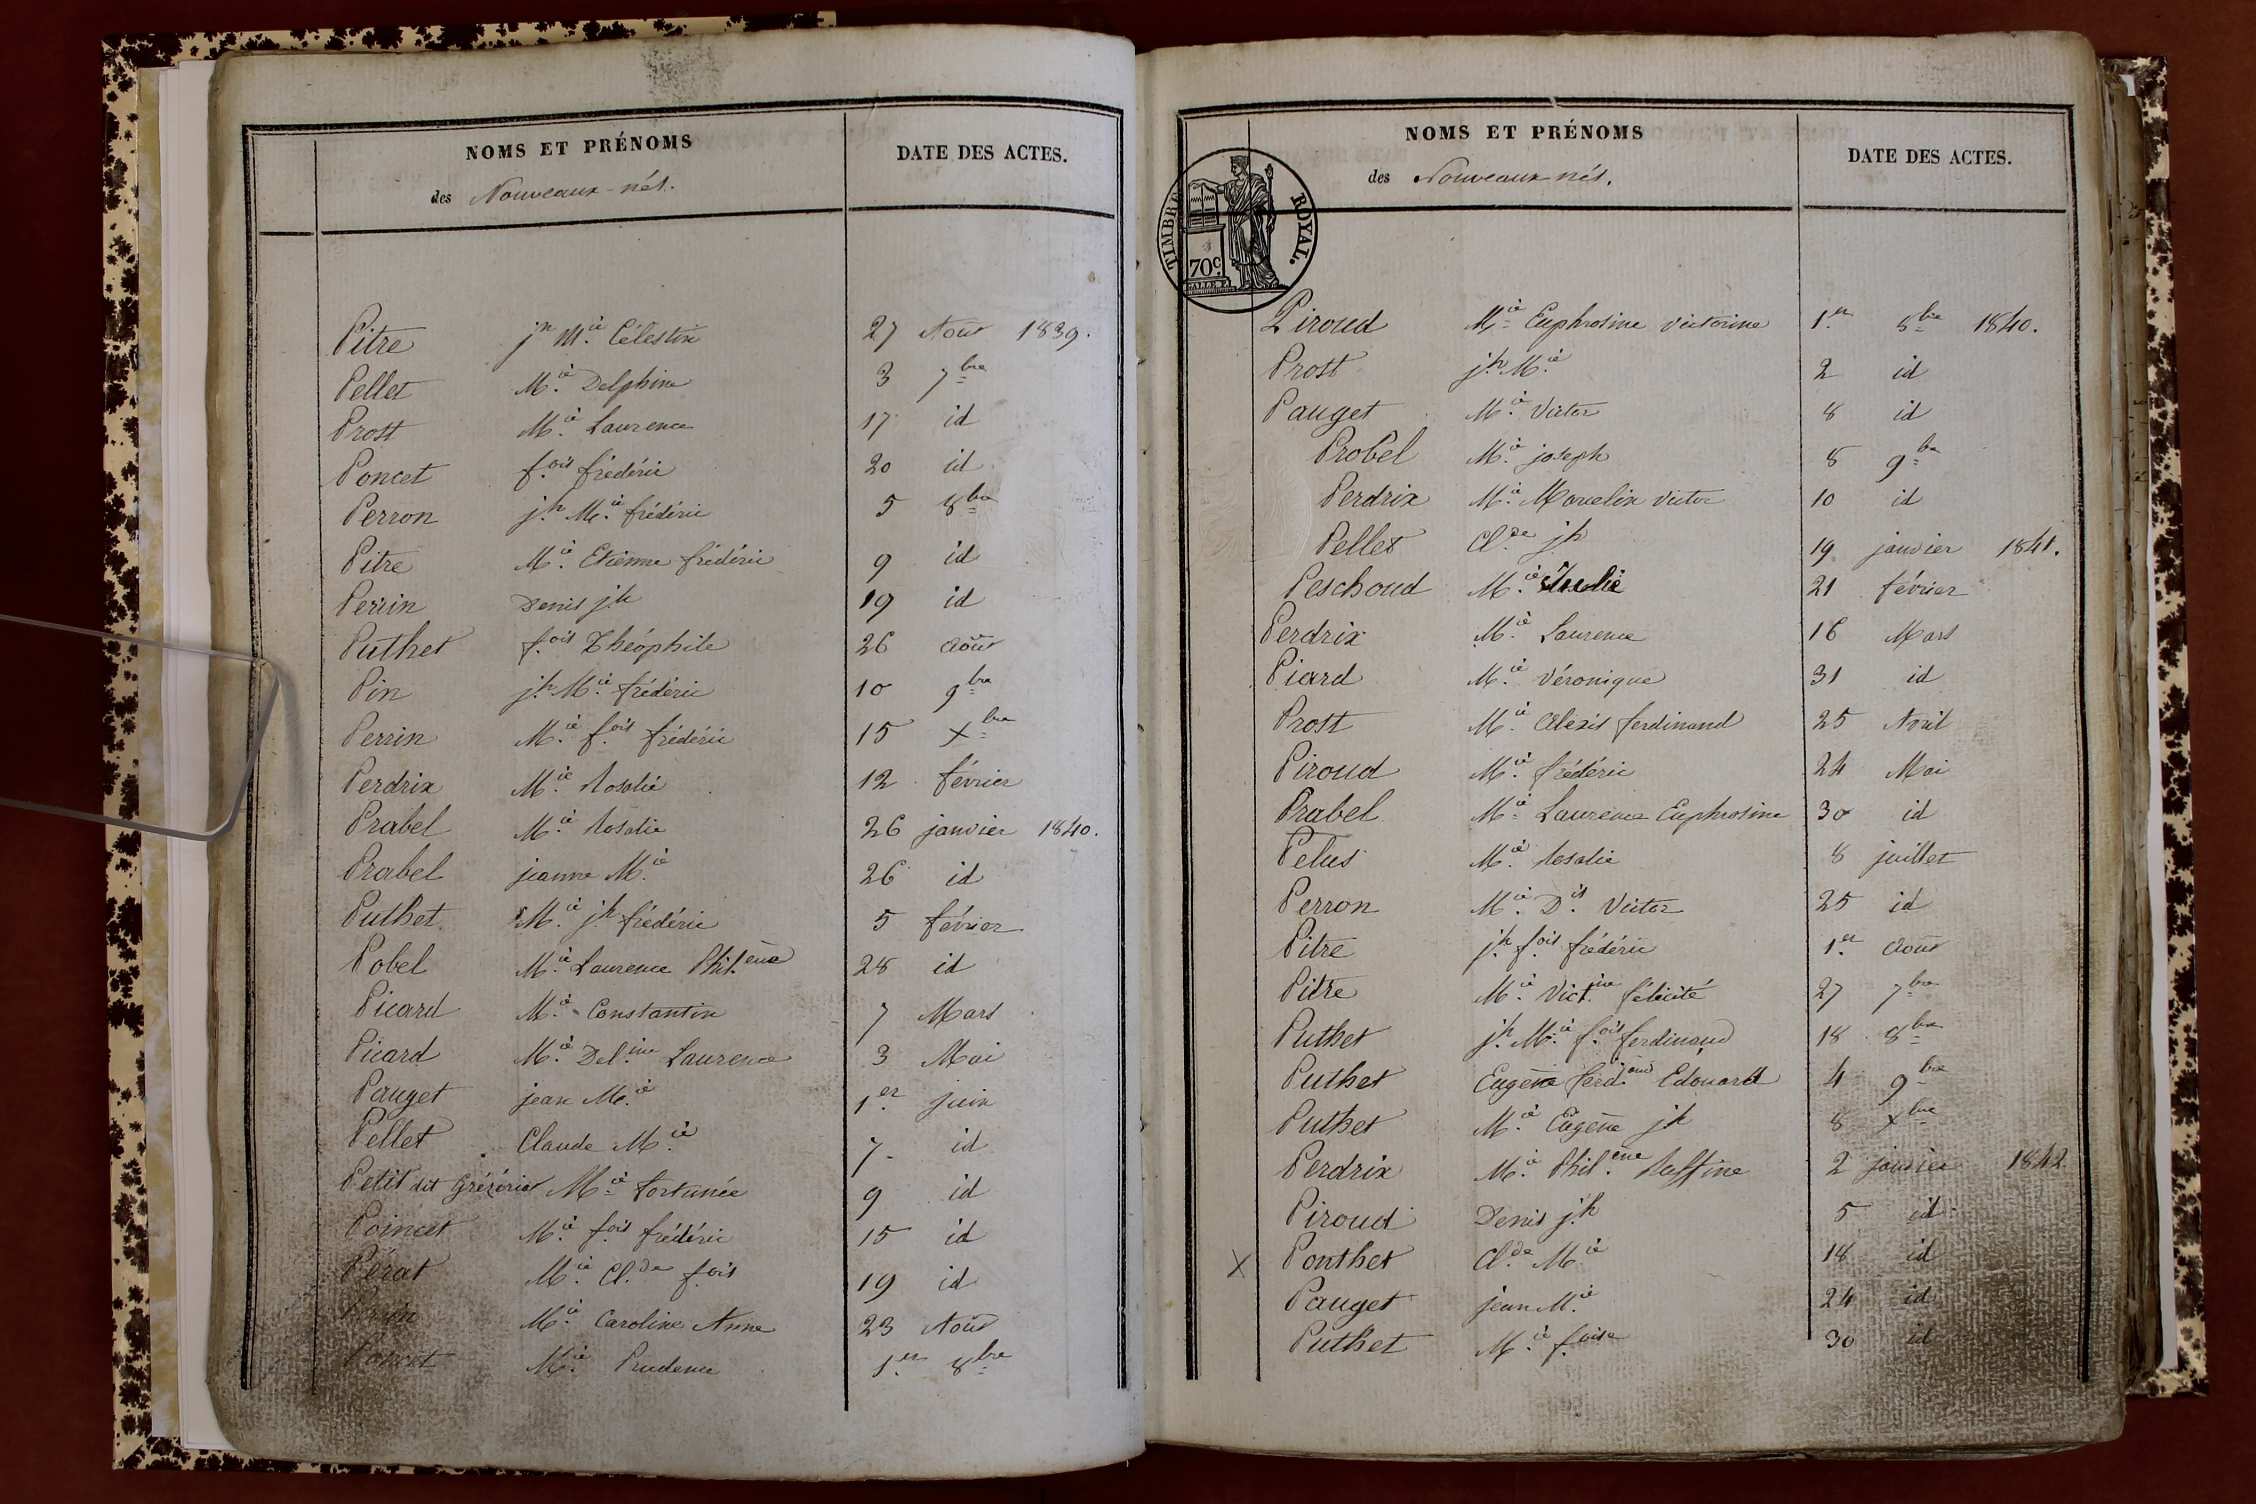 NOMS ET PRÉNOMS
des Nouveaux-nés.
DATE DES ACTES.
Pitre jn M.ie Célestin 27 Aout 1839.
Pellet M.ie Delphine 3 7bre
Prost M.ie Laurence 17 id
Poncet f.ois frédéric 20 id
Perron j.h M.ie frédéric 5 8bre
Pitre M.ie Etienne frédéric 9 id
Perrin Denis j.h 19 id
Puthet f.ois Théophile 26 août
Pin j.h M.ie frédéric 10 9bre
Perrin M.ie f.ois frédéric 15 Xbre
Perdrix M.ie Rosalie 12 février
Prabel M.ie Rosalie 26 janvier 1840.
Prabel jeanne M.ie 26 id
Puthet M.ie j.h frédéric 5 février
Pobel M.ie Laurence Phil.ène 28 id
Picard M.ie Constantin 7 Mars
Picard M.ie Del.ine Laurence 3 Mai
Pauget jean M.ie 1.er juin
Pellet Claude M.ie 7 id
Petit dit M.ie fortunée 9 id
Poincet M.ie f.ois frédéric 15 id
Pérat M.ie Cl.de f.ois 19 id
Perrin M.ie Caroline Anne 23 Août
Poncet M.ie Prudence 1.er 8bre
NOMS ET PRÉNOMS
des Nouveaux-nés.
DATE DES ACTES.
TIMBRE ROYAL.
70c.
Piroud M.ie Euphrosine victorine 1.er 8bre 1840.
Prost j.h M.ie 2 id
Pauget M.ie Victor 8 id
Probel M.ie joseph 8 9bre
Perdrix M.ie victor 10 id
Pellet Cl.de j.h 19 janvier 1841.
Peschoud M.ie Julie 21 février
Perdrix M.ie Laurence 16 Mars
Picard M.ie Véronique 31 id
Prost M.ie Alexis ferdinand 25 Avril
Piroud M.ie frédéric 24 Mai
Prabel M.ie Laurence Euphrosine 30 id
Pelus M.ie Rosalie 8 juillet
Perron M.ie D.is Victor 25 id
Pitre j.h f.ois frédéric 1.er août
Pitre M.ie Vict.ine félicité 27 7bre
Puthet j.h M.ie f.ois ferdinand 18 8bre
Puthet Eugène ferd.and Edouard 4 9bre
Puthet M.ie Eugène j.h 8 Xbre
Perdrix M.ie Phil.ène Ruffine 2 janvier 1842.
Piroud Denis j.h 5 id
X Ponthet Cl.de M.ie 18 id
Pauget jean M.ie 24 id
Puthet M.ie f.oise 30 id